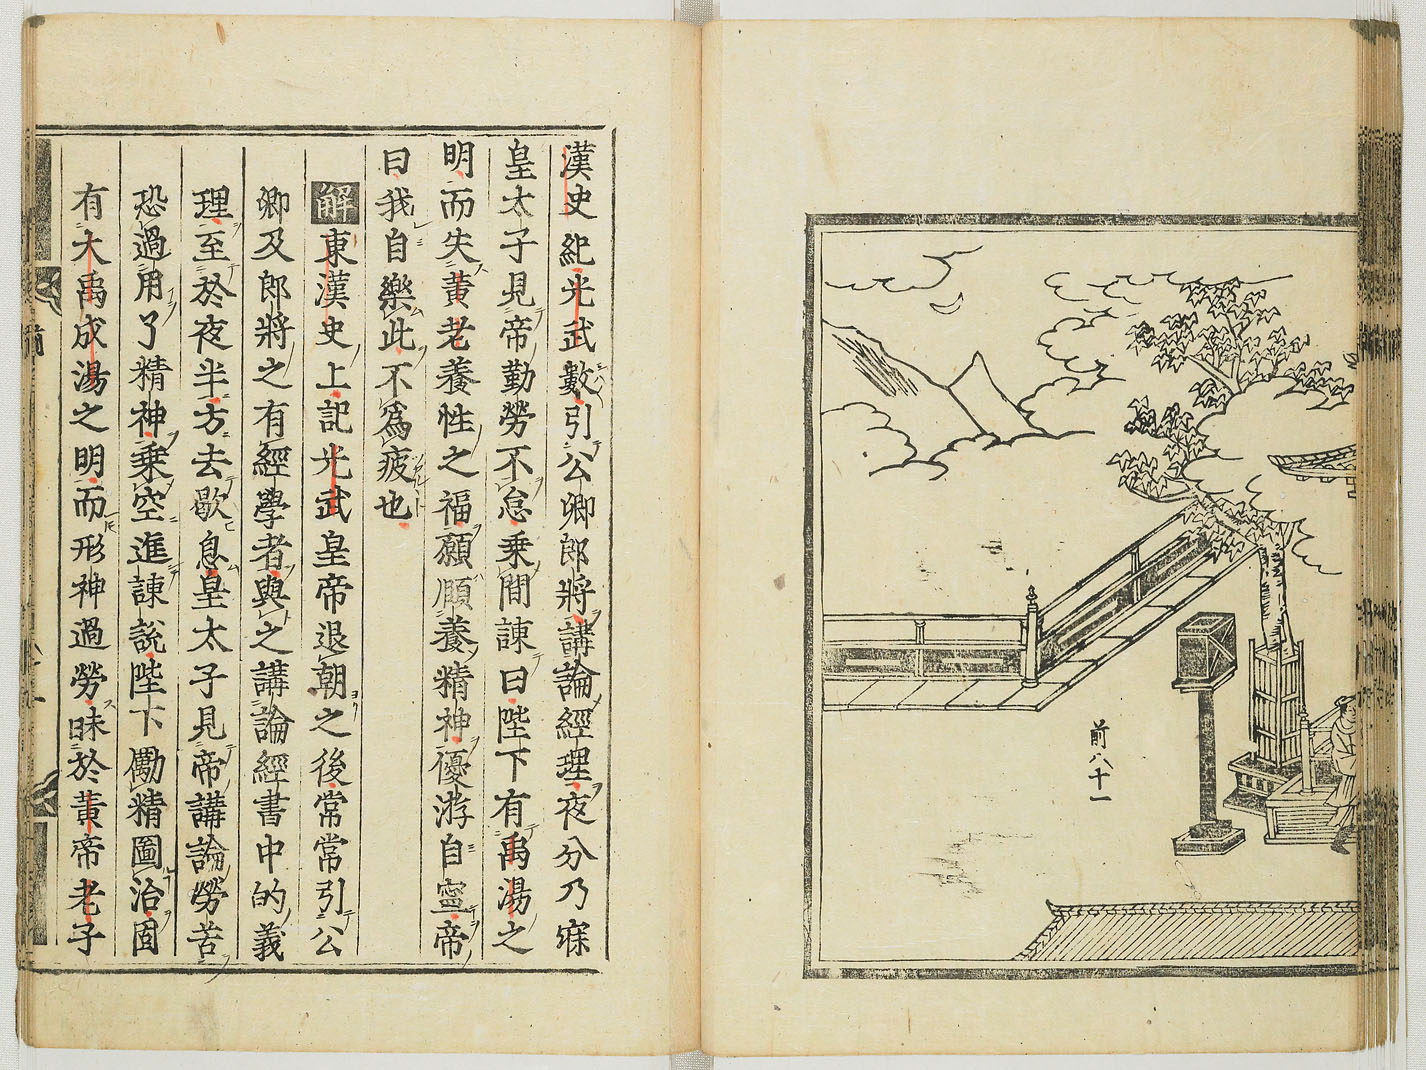 前八十一
漢史紀光武數引公卿郎將講論經理夜分乃寐
皇太子見帝勤勞不怠乗間諌曰陛下有禹湯之
明而失黃老養性之福願頤養精神優游自寧帝
曰我自樂此不爲疲也
解東漢史上記光武皇帝退朝之後常常引公
卿及郎將之有經學者與之講論經書中的義
理至於夜半方去歇息皇太子見帝講論勞苦
恐過用了精神乗空進諌說陛下勵精圖治固
有大禹成湯之明而形神過勞昧於黃帝老子